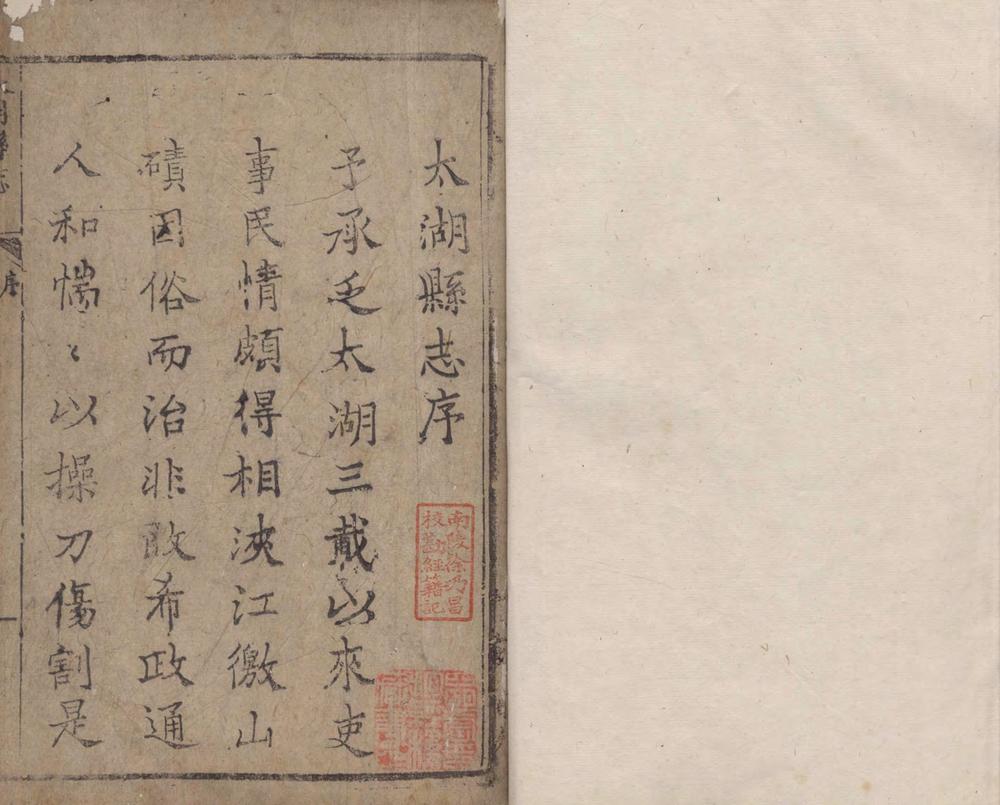 太湖縣志序
予承乏太湖三載以來吏
事民情頗得相浹江徼山
磧因俗而治非敢希政通
人和惴〻以操刀傷割是
南陵徐乃昌
校勘經籍記
序